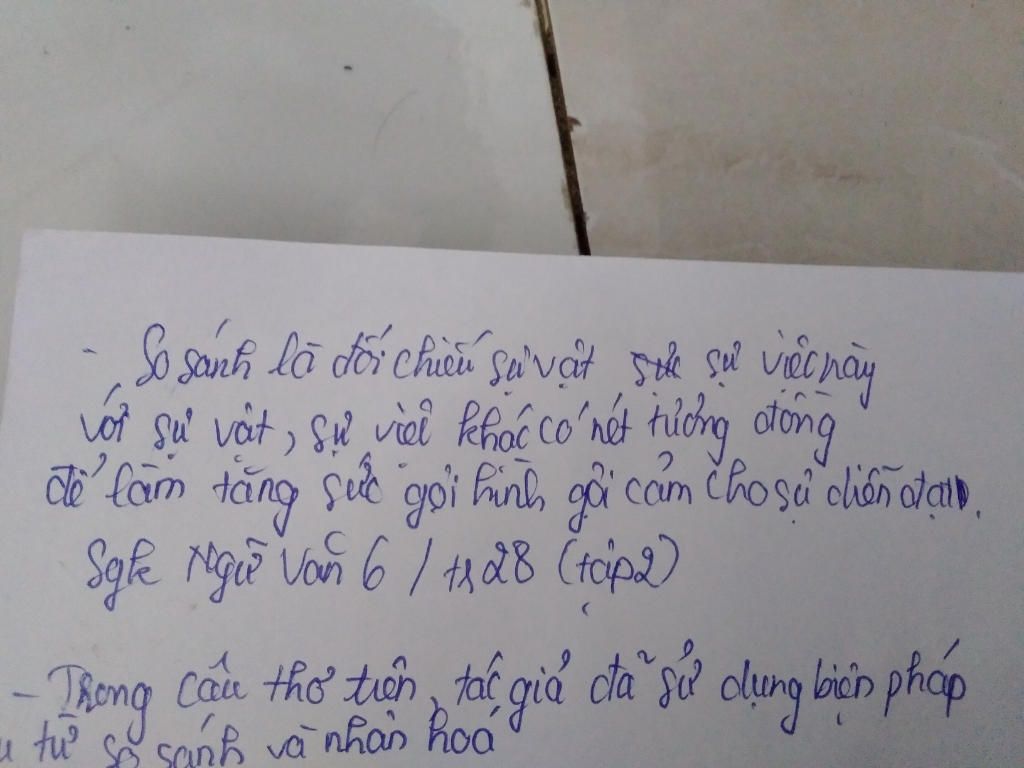 - So sánh là đối chiếu sự vật sự việc này
với sự vật, sự việc khác có nét tương đồng
để làm tăng sức gợi hình gợi cảm cho sự diễn đạt.
Sgk Ngữ Văn 6 / tr 28 (tập 2)
- Trong câu thơ trên, tác giả đã sử dụng biện pháp
từ so sánh và nhân hoá